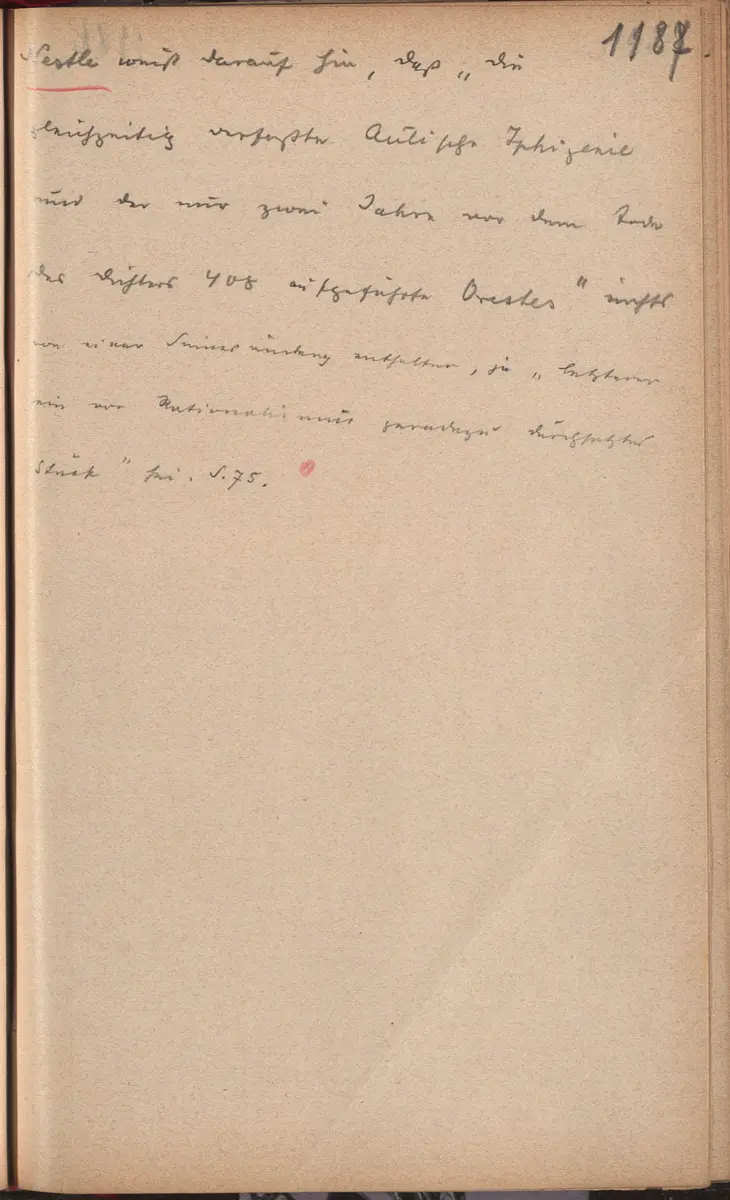 1187.
Nestle weist darauf hin, daß „die
gleichzeitig verfaßte Aulische Iphigenie
und der nur zwei Jahre vor dem Tode
des Dichters 408 aufgeführte Orestes" nichts
von einer Sinnesänderung enthalten, ja „letzterer
ein von Rationalismus geradezu durchsetztes
Stück" sei. S. 75.